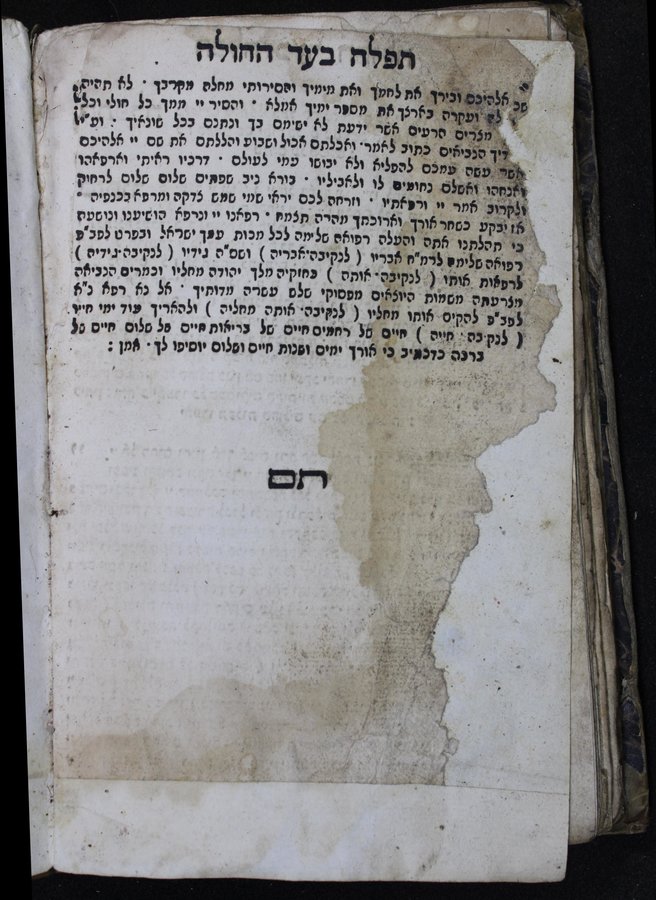 תפלה בעד החולה
אלהיכם וברך את לחמך ואת מימיך והסירותי מחלה מקרבך · לא תהיה
ועקרה בארצך את מספר ימיך אמלא · והסיר יי ממך כל חולי וכל
מצרים הרעים אשר ידעת לא ישימם בך ונתנם בכל שונאיך : וע״י
הנביאים כתוב לאמר · ואכלתם אכול ושבוע והללתם את שם יי אלהיכם
אשר עשה עמכם להפליא ולא יבושו עמי לעולם · דרכיו ראיתי וארפאהו
ואנחהו ואשלם נחומים לו ולאביליו · בורא ניב שפתים שלום שלום לרחוק
ולקרוב אמר יי ורפאתיו · וזרחה לכם יראי שמי שמש צדקה ומרפא בכנפיה ·
אז יבקע כשחר אורך וארוכתך מהרה תצמח · רפאנו יי ונרפא הושיענו ונושעה
כי תהלתנו אתה והעלה רפואה שלימה לכל מכות עמך ישראל ובפרט לפב״פ
רפואה שלימה לרמ״ח אבריו ( לנקיבה · אבריה ) ושס״ה גידיו ( לנקיבה · גידיה )
לרפאות אותו ( לנקיבה · אותה ) כחזקיה מלך יהודה מחליו וכמרים הנביאה
מצרעתה משמות היוצאים מפסוקי שלש עשרה מדותיך · אל נא רפא נ״א
לפב״פ להקים אותו מחליו ( לנקיבה · אותה מחליה ) ולהאריך עוד ימי חייו
( לנקבה · חייה ) חיים של רחמים חיים של בריאות חיים של שלום חיים של
ברכה כדכתיב כי אורך ימים ושנות חיים ושלום יוסיפו לך · אמן :
תם